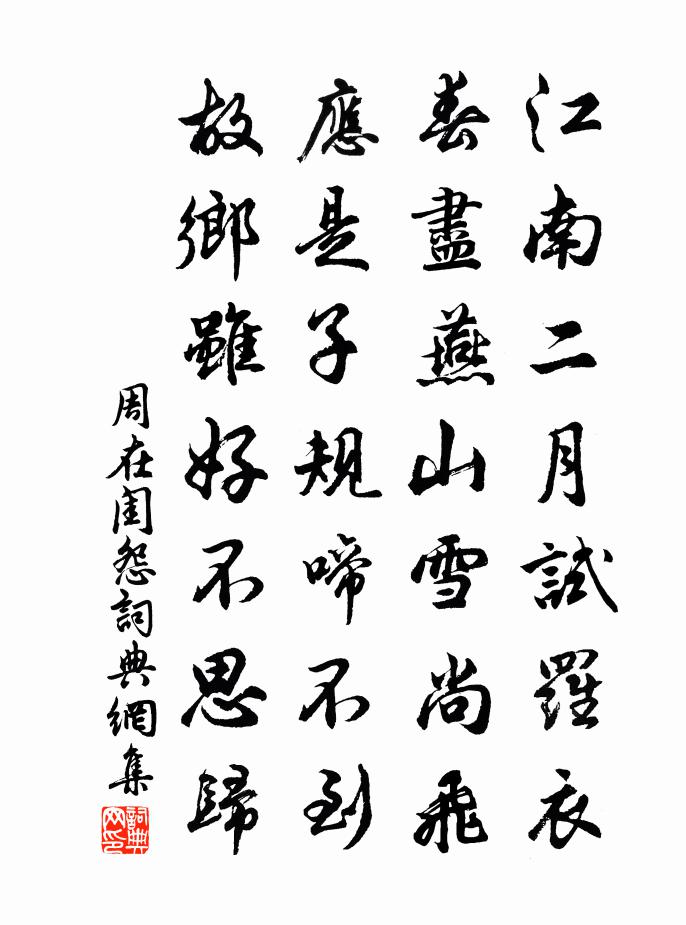 江南二月試羅衣
春盡燕山雪尚飛
應是子規啼不到
故鄉雖好不思歸
周在閨怨詞典網集
詞典网印